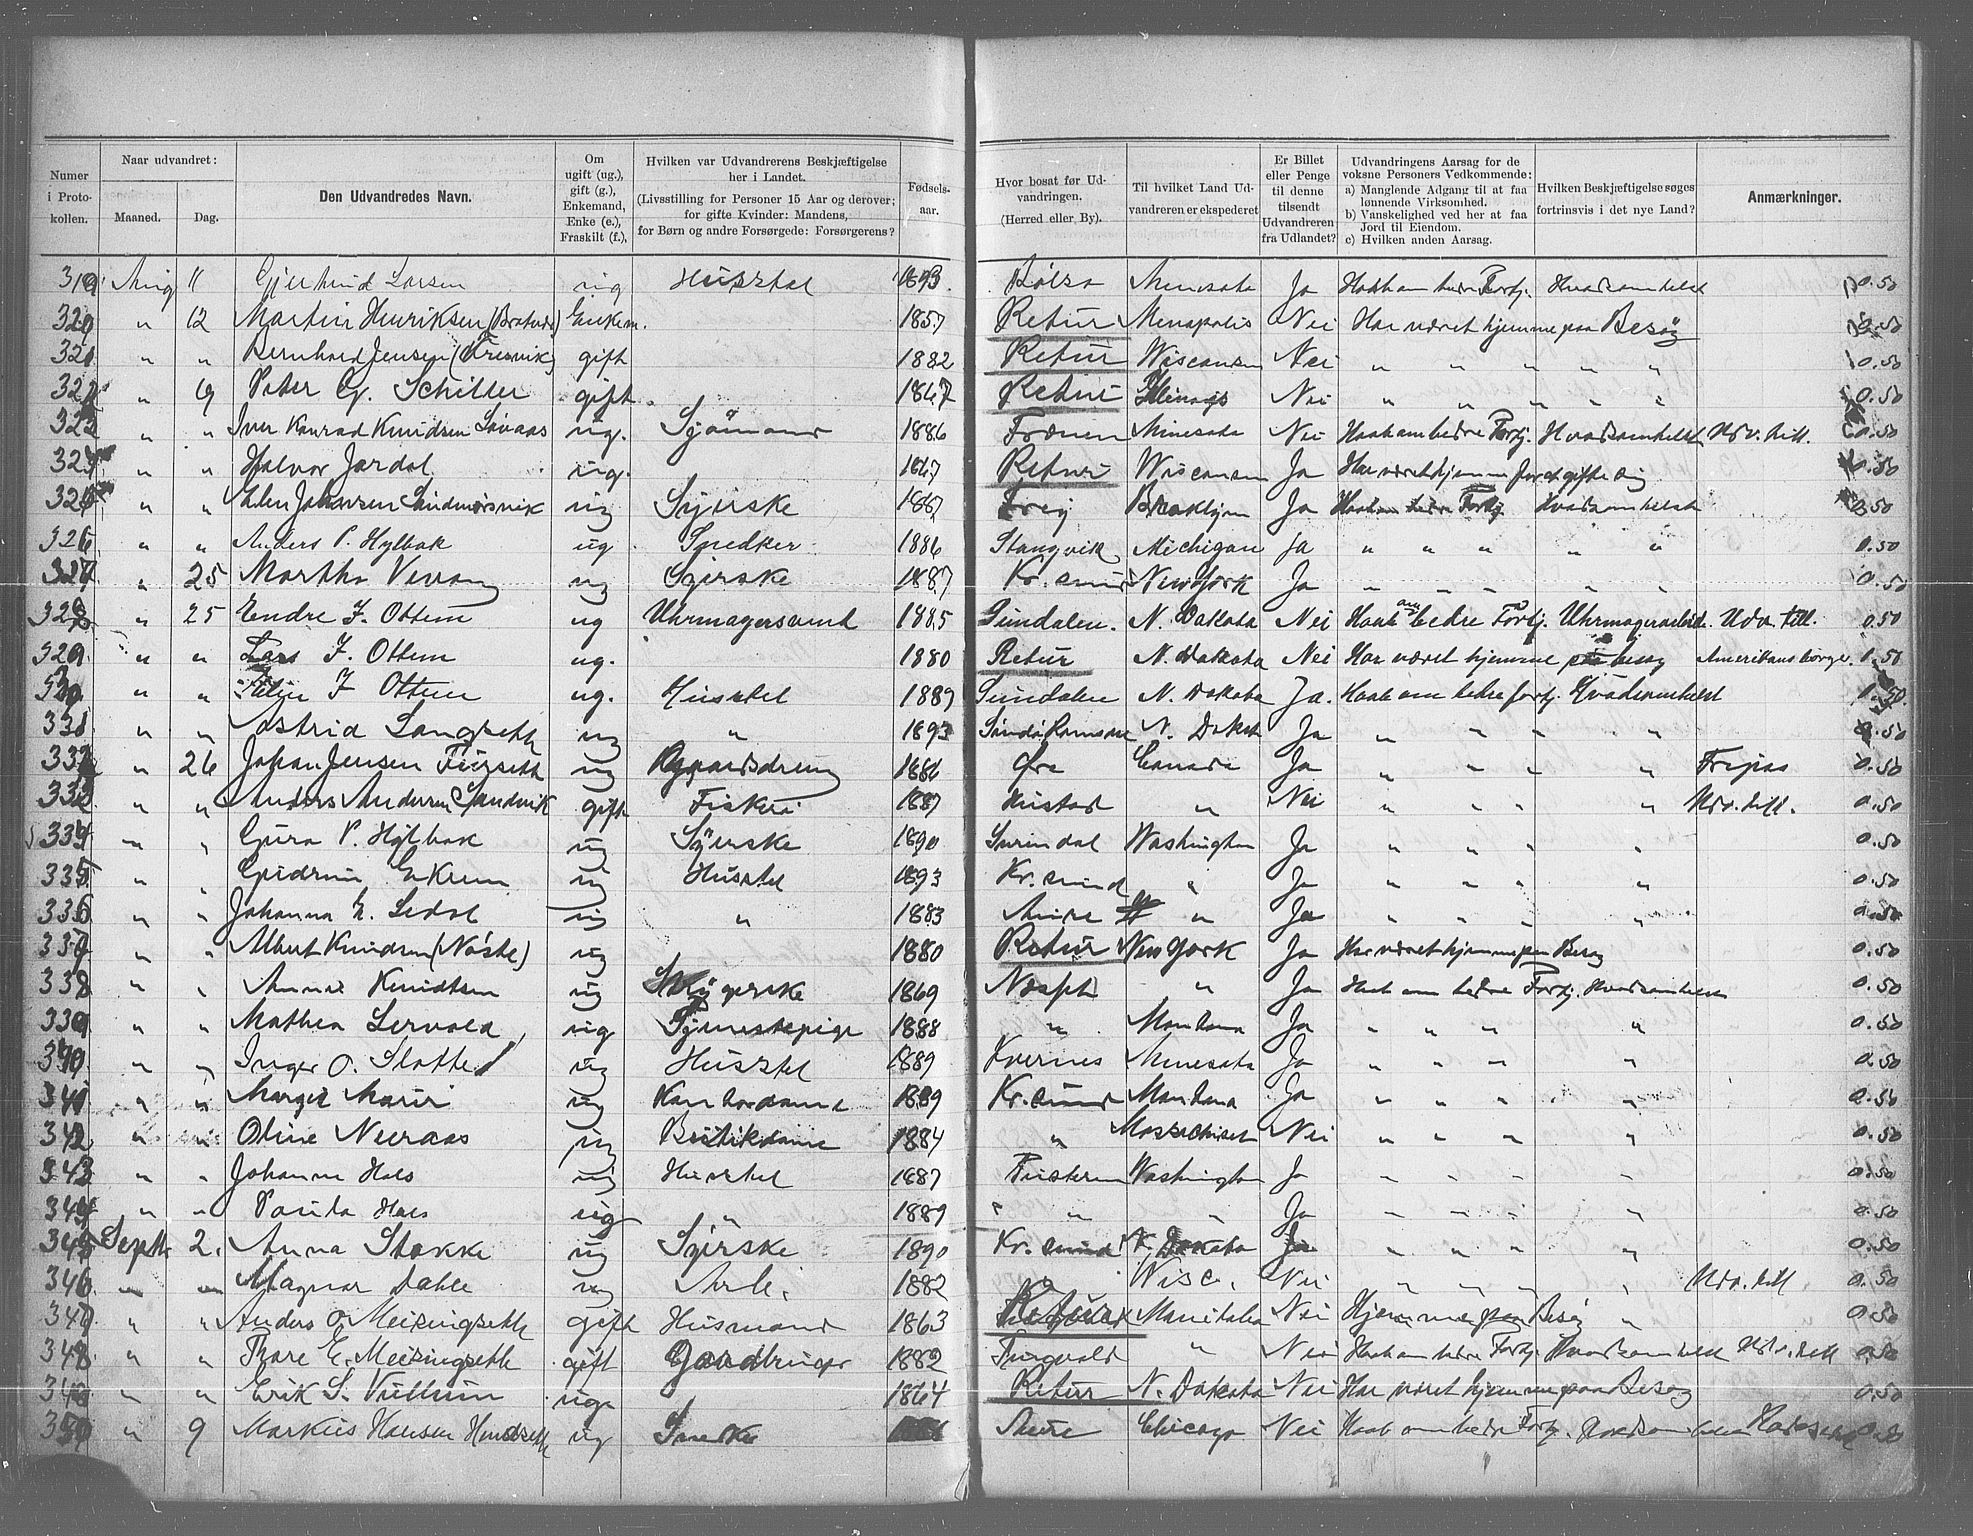 Numer i Proto-kollen. Naar udvandret: Maaned. Dag. Den Udvandredes Navn. Om ugift (ug.), gift (g.), Enkemand, Enke (e.), Fraskilt (f.), Hvilken var Udvandrerens Beskjæftigelse her i Landet. (Livsstilling for Personer 15 Aar og derover; for gifte Kvinder: Mandens, for Børn og andre Forsørgede: Forsørgerens? Fødsels-aar. Hvor bosat før Ud-vandringen. (Herred eller By). Til hvilket Land Ud-vandreren er ekspederet Er Billet eller Penge til denne tilsendt Udvandreren fra Udlandet? Udvandringens Aarsag for de voksne Personers Vedkommende: a) Manglende Adgang til at faa lønnende Virksomhed. b) Vanskelighed ved her at faa Jord til Eiendom. c) Hvilken anden Aarsag. Hvilken Beskjæftigelse søges fortrinsvis i det nye Land? Anmærkninger.
319 Aug 11 Gjertrud Larsen ug Hustel 1893 Bolsø Minesota Ja Haab om bedre Fortj. Hvadsomhelst 0.50
320 " 12 Martin Henriksen Enkem. 1857 Retur Menapolis Nei Har været hjemme paa Besøg 0.50
321 " " Bernhard Jensen gift 1882 Retur Wisconsin Nei " " " " 0.50
322 " 19 Peter G. Schiller gift 1867 Retur Illinois Nei " " " " 0.50
323 " " Iver Konrad Knudsen Løvaas ug. Sjømand 1886 Frænen Minesota Nei Haab om bedre Fortj. Hvadsomhelst Udv. till. 0.50
324 " " Halvor Jordal ug. Retur Wisconsin Ja Har været hjemme for at gifte sig 0.50
325 " " Elen Johansen ug Syerske 1887 Frei Brooklyn Ja Haab om bedre Fortj. Hvadsomhelst 0.50
326 " " Anders P. Hylbak ug Snedker 1886 Stangvik Michigan Ja " " " " " 0.50
327 " 25 Martha Vevang ug Syerske 1887 Kr.sund New York Ja " " " " " 0.50
328 " 25 Endre J. Ottem ug Uhrmagersvend 1885 Sundalen. N. Dakota Nei Haab om bedre Fortj. Uhrmagerarbeide. Udv. till. 0.50
329 " " Lars J. Ottem ug. 1880 Retur N. Dakota Nei Har været hjemme paa besøg Amerikansborger 0.50
330 " " J Ottem ug. Hustel 1889 Sundalen N. Dakota Ja. Haab om bedre fortj. Hvadsomhelst 0.50
331 " " Astrid Langseth ug " 1893 N. Dakota Ja " " " " 0.50
332 " 26 Johan Jensen Furseth ug Gaardsdreng 1886 Øre Canada Ja " " " " Fripas 0.50
333 " " Anders Andersen Sandvik gift Fisker 1887 Hustad " Nei " " " " Udv. till. 0.50
334 " " Gura P. Hylbak ug Syerske 1890 Surendal Washington Ja " " " " 0.50
335 " " Gudrun Ekrem ug Hustel 1893 Kr.sund " Ja " " " " 0.50
336 " " Johanna E. ug " 1883 Aure " Ja " " " " 0.50
337 " " Albert Knudsen (Nøste) ug 1880 Retur New York Ja Har været hjemme paa Besøg 0.50
338 " " Anna Knudtsen ug 1869 " Ja Haab om bedre Fortj. Hvadsomhelst 0.50
339 " " Mathea Lervold ug Tjenestepige 1888 " Montana Ja " " " " 0.50
340 " " Inger O. Slatte ug Hustel 1889 Kvernes Minesota Ja " " " " 0.50
341 " " Margit Moür ug Kontordame 1889 Kr.sund Montana Ja " " " " 0.50
342 " " Oline Neeraas ug Butikdame 1884 " Massachuset Nei " " " " 0.50
343 " " Johanna Haas ug Hustel 1887 Tusteren Washington Ja " " " " 0.50
344 " " Paula Haas ug " 1889 " " Ja " " " " 0.50
345 Septbr 2. Anna Stokke ug Syerske 1890 Kr.sund N. Dakota Ja " " " " 0.50
346 " " Magnar Dahle ug Arb. 1882 " Wisc. Nei " " " " Udv. till 0.50
347 " " Anders O. Meisingseth gift Husmand 1863 Retur Manitoba Nei Hjemme paa Besøg " 0.50
348 " " Thore E. Meisingseth gift Gaardbruger 1882 Tingvold " Nei Haab om bedre Fortj. Hvadsomhelst Udv. till 0.50
349 " " Erik S. Vullum ug. 1864 Retur N. Dakota Nei Har været hjemme paa Besøg 0.50
350 " 9 Markus Hansen ug Aure Chicago Nei Haab om bedre Fortj. Hvadsomhelst 0.50